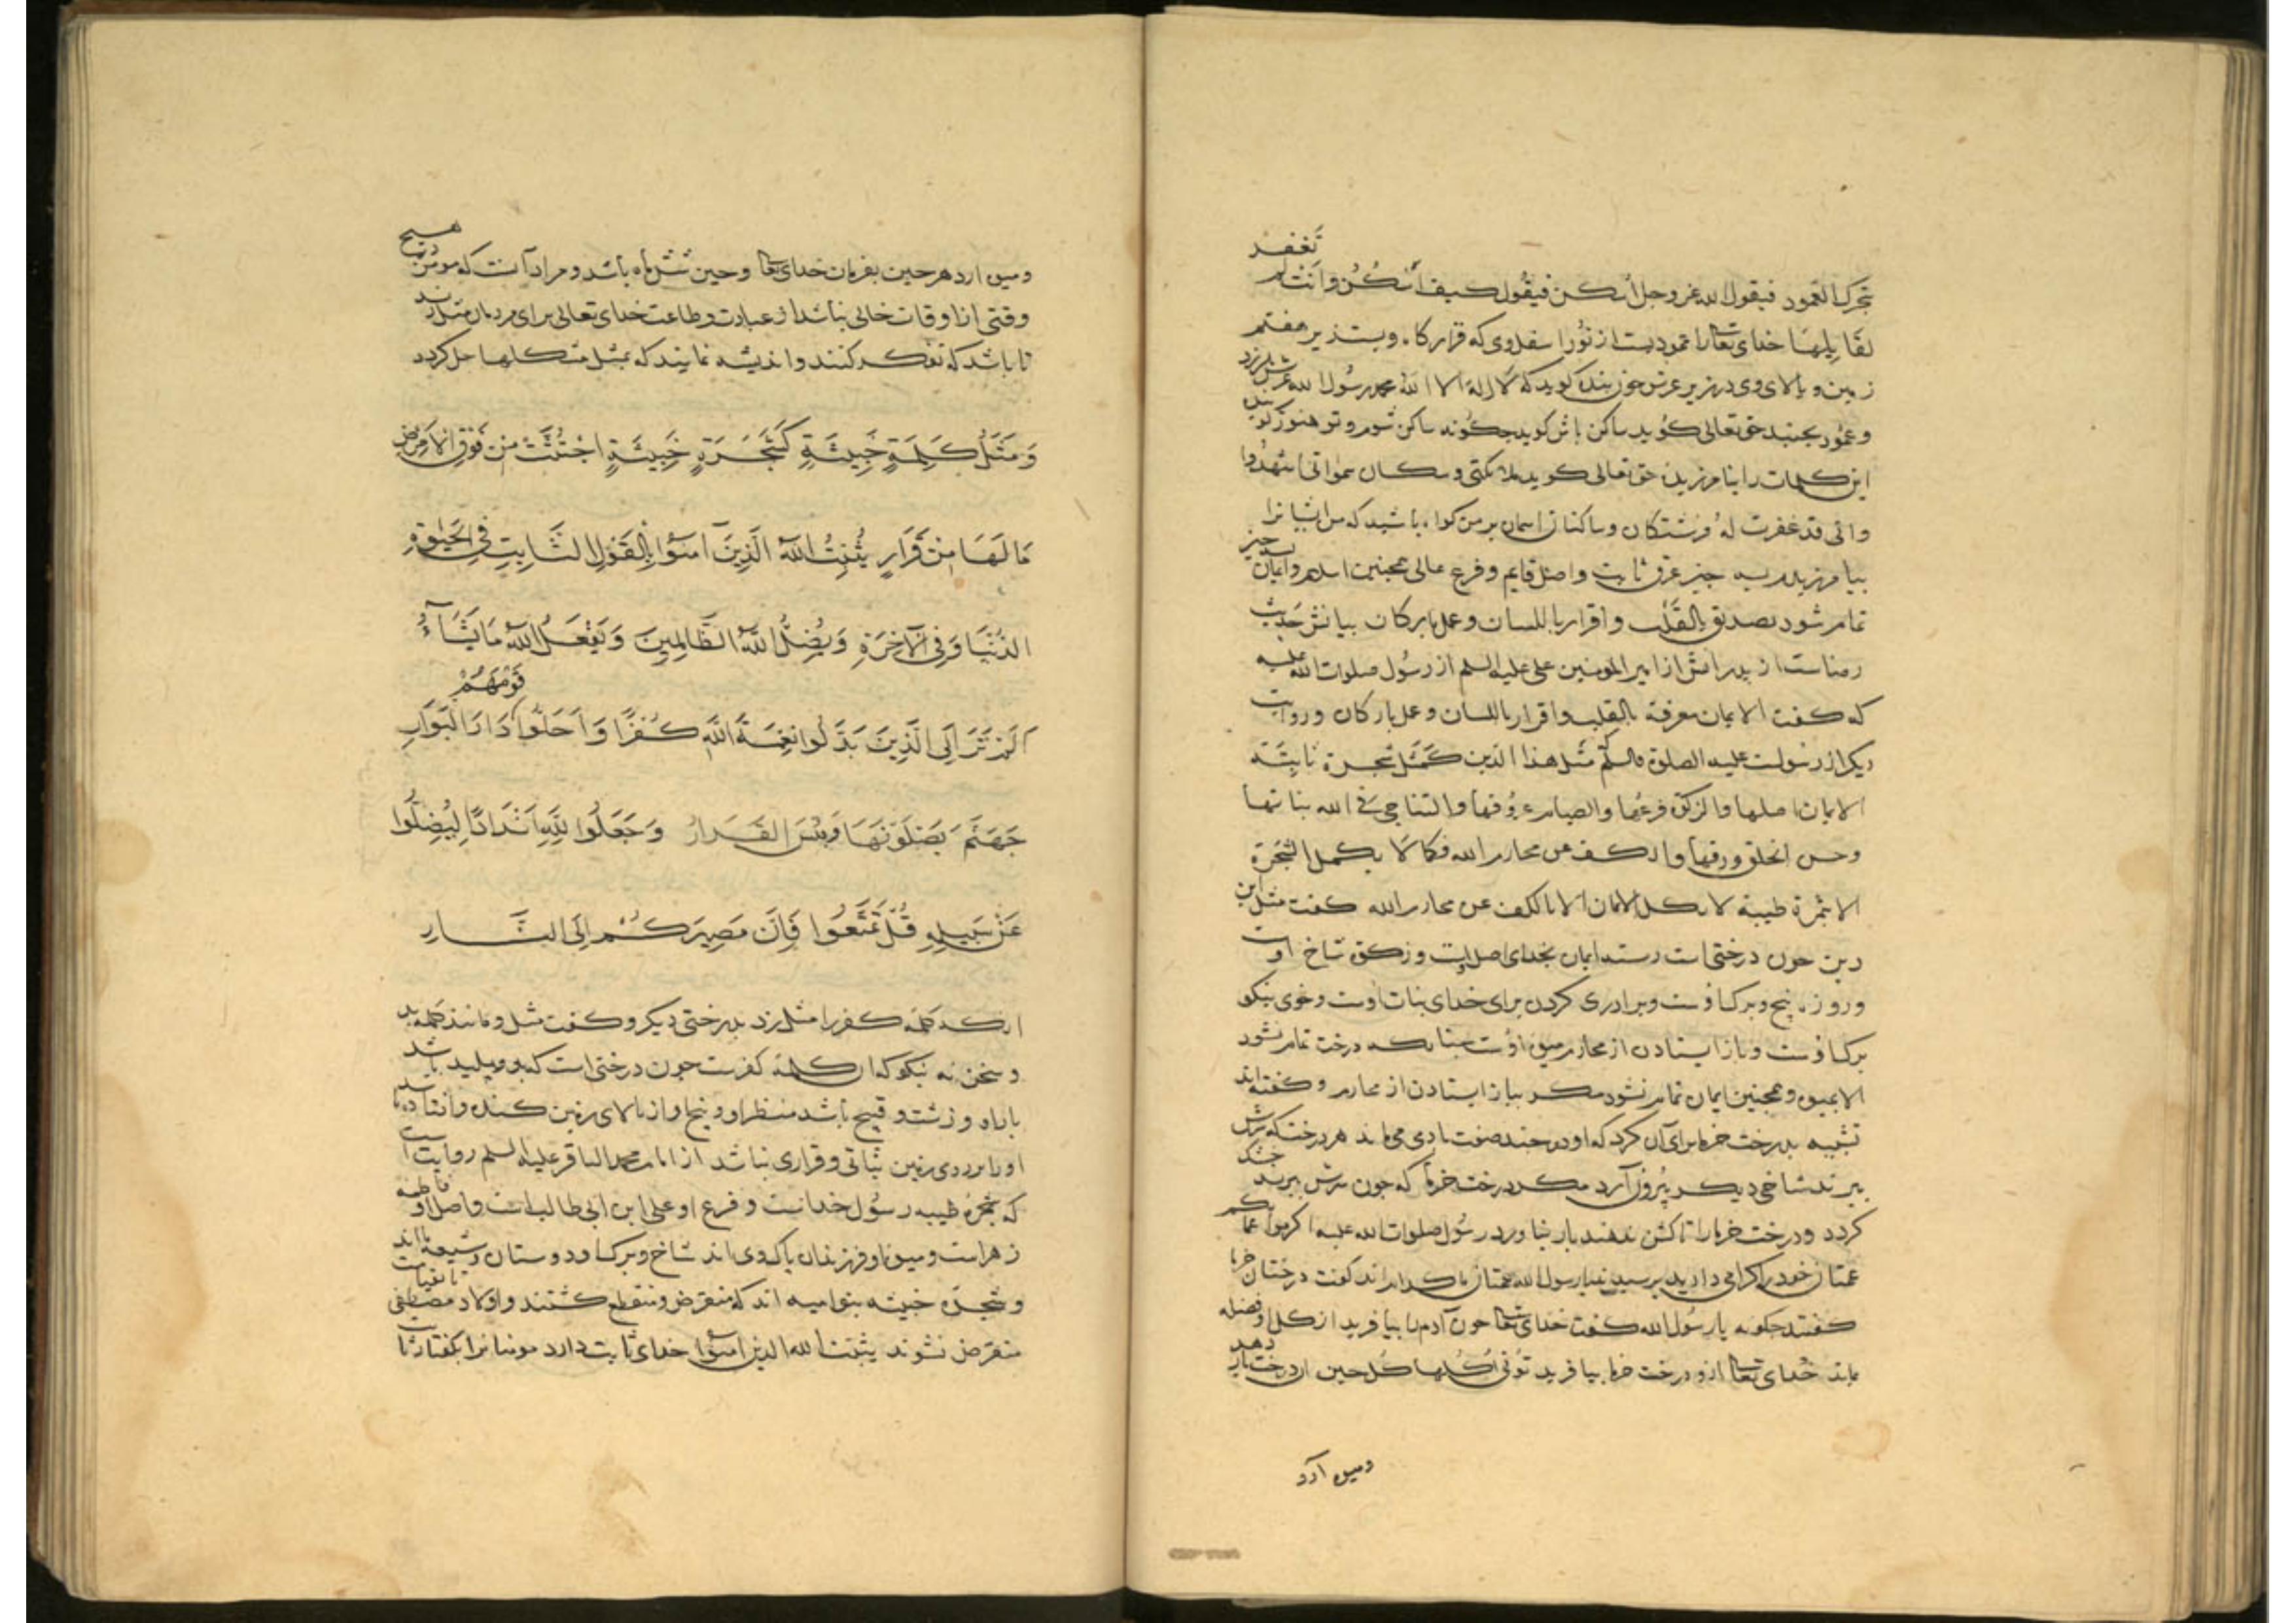 تحرك العمود فيقول الله عز وجل اسكن فيقول كيف اسكن وانت لم تغفر
لقايلها خدای تعالی را عمودیست از نور اسفل وی که قرار کاه ویست زیر هفتم
زمین و بالای وی در زیر عرش چون بنده کوید که لا اله الا الله محمد رسول الله عرش بلرزد
و عمود بجنبد حق تعالی کوید ساکن باش کوید چکونه ساکن شوم و تو هنوز کوینده
این کلمات را نیامرزیدی حق تعالی کوید ملائکتی و سکان سمواتی اشهدوا
وانی قد غفرت له فرشتکان و ساکنان اسمان بر من کواه باشید که من ایشانرا
بیامرزیدم بسه چیز عرق ثابت و اصل قایم و فرع عالی همچنین اسلام و ایمان بسه چیز
تمام شود تصدیق بالقلب و اقرار باللسان و عمل بارکان بیانش حدیث
رضاست از پدرانش از امیر المومنین علی علیه السلم از رسول صلوات الله علیه
که کفت الایمان معرفة بالقلب و اقرار باللسان و عمل بارکان و روایت
دیکر از رسولست علیه الصلوة والسلم مثل هذا الدین کمثل شجرة ثابتة
الایمان اصلها والزکوة فرعها والصیام عروقها والتناجی فی الله بناتها
وحسن الخلق ورقها والکف عن محارم الله فکما لا یکمل الشجرة
الا بثمرة طیبة لا یکمل الایمان الا بالکف عن محارم الله کفت مثل این
دین چون درختی است رسته ایمان بخدای اصل اوست و زکوة شاخ اوست
و روزه بیخ و برک اوست و برادری کردن برای خدای بنات اوست و خوی نیکو
برک اوست و باز ایستادن از محارم میوه اوست چنانکه درخت تمام نشود
الا بمیوه و همچنین ایمان تمام نشود مکر بباز ایستادن از محارم و کفته اند
تشبیه بدرخت خرما برای آن کرد که او در چند صفت بادمی می ماند هر درخت که سرش
ببرند شاخی دیکر بیرون آرد مکر درخت خرما که چون سرش ببرند خشک
کردد و درخت خرما را تا کشن ندهند بار نیاورد رسول صلوات الله علیه اکرموا عماتکم
عمتان خود را کرامی دارید پرسیدند یا رسول الله عمتان ما کدام اند کفت درختان خرما
کفتند چکونه یا رسول الله کفت خدای تعالی چون آدم را بیافرید از کل او فضله
بماند خدای تعالی ازو درخت خرما بیافرید تؤتی اکلها کل حین این درخت بار دهد
ومیوه آرد
ومیوه ارد هر حین بفرمان خدای تعالی و حین شش ماه باشد و مراد آنست که مومن در هیچ
وقتی از اوقات خالی نباشد از عبادت و طاعت خدای تعالی برای مردمان مثل زند
تا باشد که تفکر کنند و اندیشه نمایند که بمثل مشکلها حل کردد
وَمَثَلُ كَلِمَةٍ خَبِيثَةٍ كَشَجَرَةٍ خَبِيثَةٍ اجْتُثَّتْ مِنْ فَوْقِ الْأَرْضِ
مَا لَهَا مِنْ قَرَارٍ يُثَبِّتُ اللَّهُ الَّذِينَ آمَنُوا بِالْقَوْلِ الثَّابِتِ فِي الْحَيٰوةِ
الدُّنْيَا وَفِي الْآخِرَةِ وَيُضِلُّ اللَّهُ الظَّالِمِينَ وَيَفْعَلُ اللَّهُ مَا يَشَآءُ
اَلَمْ تَرَ اِلَى الَّذِينَ بَدَّلُوا نِعْمَةَ اللَّهِ كُفْرًا وَاَحَلُّوا قَوْمَهُمْ دَارَ الْبَوَارِ
جَهَنَّمَ يَصْلَوْنَهَا وَبِئْسَ الْقَرَارُ وَجَعَلُوا لِلَّهِ اَنْدَادًا لِيُضِلُّوا
عَنْ سَبِيلِهِ قُلْ تَمَتَّعُوا فَاِنَّ مَصِيرَكُمْ اِلَى النَّارِ
انکه کلمه کفر را مثل زد بدرختی دیکر و کفت مثل و مانند کلمه بد
و سخن نه نیکو که ان کلمه کفرست چون درختی است که بو و پلید باشد
باراه و زشت و قبیح باشد منظر او و بیخ او از بالای زمین کنده و افتاده تا
او را بر روی زمین ثباتی و قراری نباشد از امام محمد الباقر علیه السلم روایت است
که شجره طیبه رسول خداست و فرع او علی ابن ابی طالب است و اصل او فاطمه
زهراست و میوه او فرزندان پاک وی اند شاخ و برک او دوستان و شیعه ما اند
و شجره خبیثه بنوامیه اند که منقرض و منقطع کشتند و اولاد مصطفی تا بقیامت
منقرض نشوند یثبت الله الذین آمنوا خدای ثابت دارد مومنانرا بکفتار ثابت